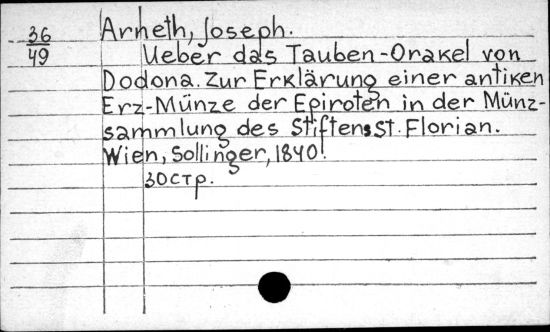 36
49
Arneth, Joseph.
Ueber das Tauben-Orakel von
Dodona. Zur Erklärung einer antiken
Erz-Münze der Epiroten in der Münz-
sammlung des Stiftens St. Florian.
Wien, Sollinger, 1840.
30 стр.